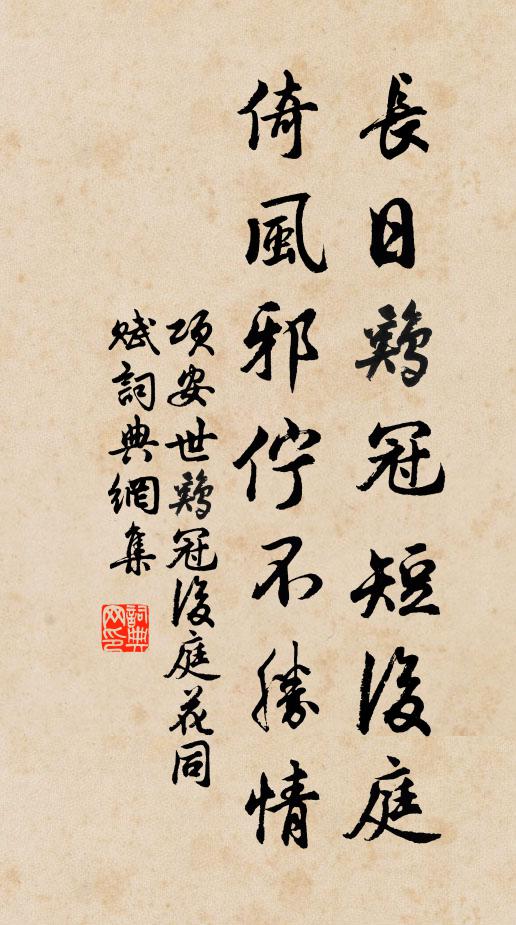 長日鷄冠短後庭
倚風邪佇不勝情
項安世鷄冠後庭花同
賦詞典網集
詞典
网印